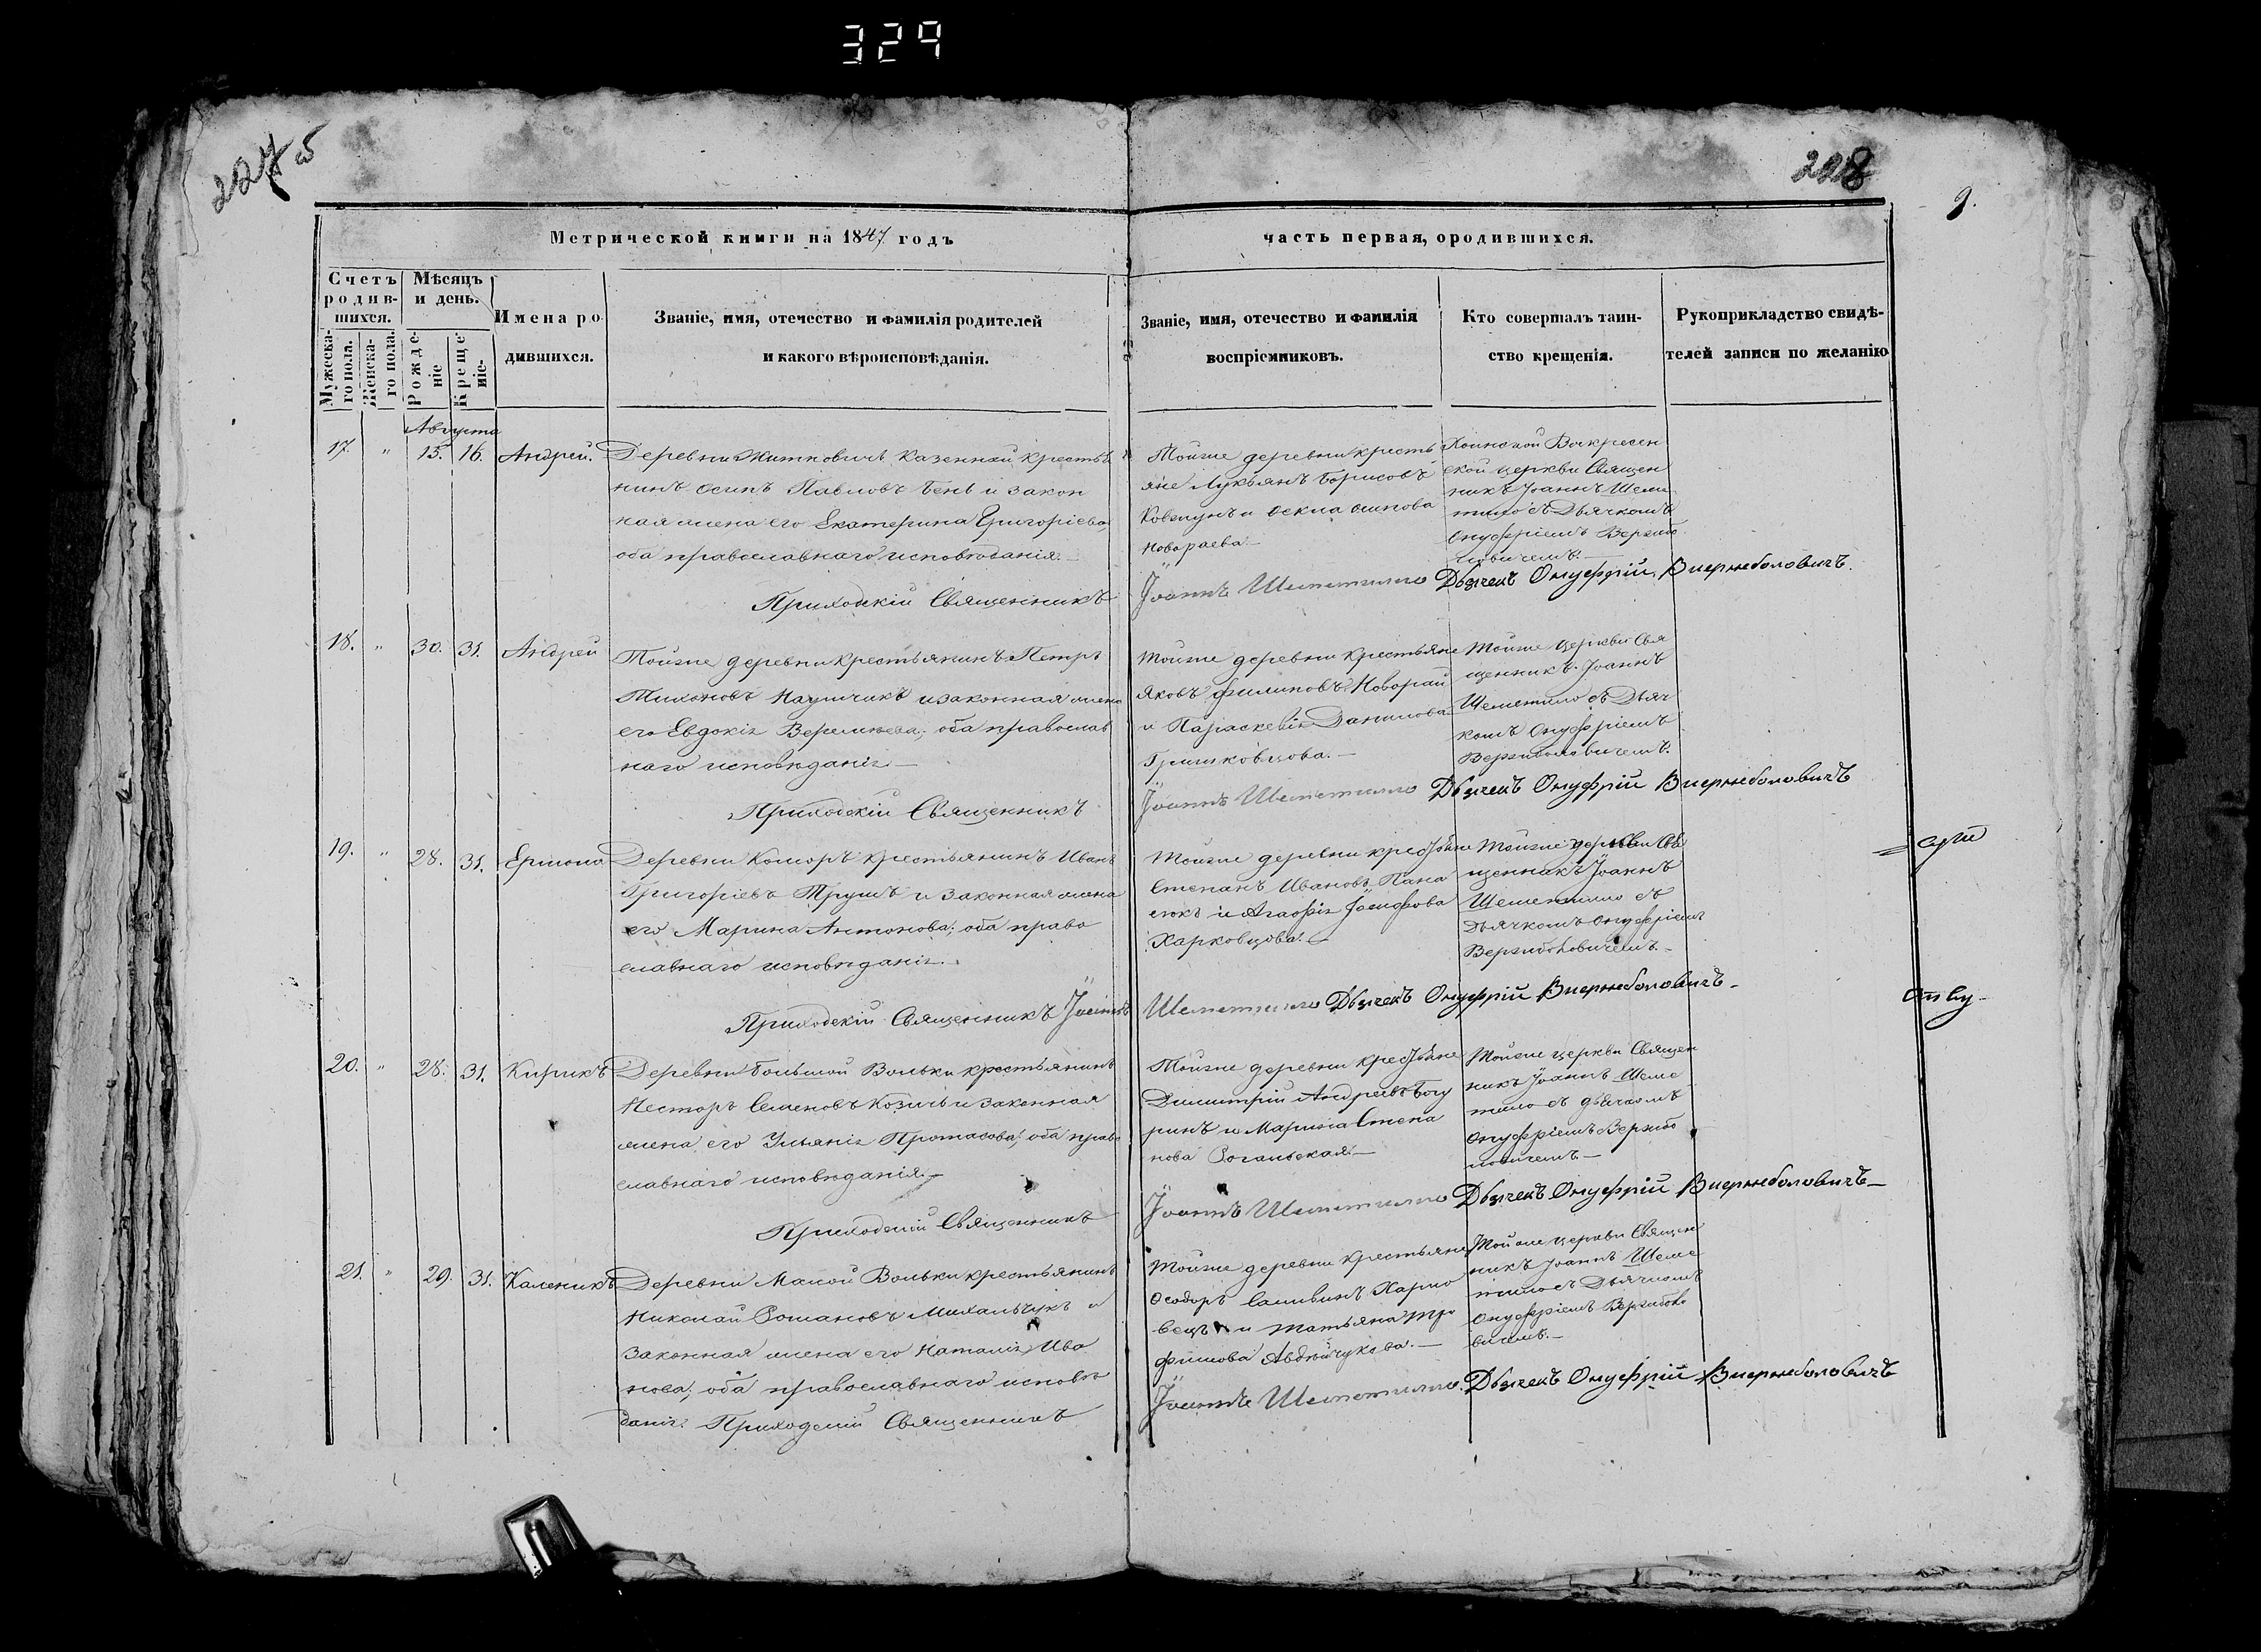 329
228
9.
Метрической книги на 1847 годъ
часть первая, ородившихся.
Счетъ родив-шихся.
Мѣсяцъ и день.
Имена ро
дившихся.
Званіе, имя, отечество и фамилія родителей
и какого вѣроисповѣданія.
Званіе, имя, отечество и фамилія
воспріємниковъ.
Кто совершалъ таин-
ство крещенія.
Рукоприкладство свидѣ-
телей записи по желанію
Мужеска-го пола.
Женска-го пола.
Рожде-ніе
Креще-ніе-
Августа
17. " 15. 16. Андрей.
Деревни Житковичъ казенный крестья
нинъ Осипъ Павловъ Бень и закон
ная жена его Екатерина Григоріева,
оба православнаго исповѣданія.
Приходскій Священникъ
Тойже деревни кресть
яне Лукьянъ Борисовъ
Ковтунъ и Фекла Осипова
Новораева.
Іоаннъ Шеметилло
Воскресен
ской церкви Священ
никъ Іоаннъ Шеме
тило съ Дьячкомъ
Онуфріемъ Вержбо
ловичемъ.
Дьячекъ Онуфрій Виержболовичъ.
18. " 30. 31. Андрей
Тойже деревни крестьянинъ Петръ
Тихоновъ Наумчикъ и законная жена
его Евдокія Веремѣева; оба православ
наго исповѣданія
Приходскій Священникъ
Тойже деревни крестьяне
Яковъ Филиповъ Новорай
и Параскевія Данилова
Гришковцова.
Іоаннъ Шеметилло
Тойже церкви Свя
щенникъ Іоаннъ
Шеметило съ Дьяч
комъ Онуфріемъ
Вержболовичемъ.
Дьячекъ Онуфрій Виержболовичъ
19. " 28. 31.
Деревни Коморъ крестьянинъ Иванъ
Григоріевъ Трушъ и законная жена
его Марина Антонова; оба право
славнаго исповѣданія.
Приходскій Священникъ Іоаннъ
Тойже деревни крестьяне
Степанъ Ивановъ Пана
сюкъ и Агафія Іосифова
Харковцова.
Шеметилло
Тойже церкви Свя
щенникъ Іоаннъ
Шеметило съ
Дьячкомъ Онуфріемъ
Вержболовичемъ.
Дьячекъ Онуфрій Виержболовичъ
20. " 28. 31. Кирикъ
Деревни Большой Вольки крестьянинъ
Несторъ Семеновъ Козичъ и законная
жена его Ульянія Протасова; оба право
славнаго исповѣданія.
Приходскій Священникъ
Тойже деревни крестьяне
Димитрій Андреевъ Богу
ринъ и Марина Степа
нова Рогальская.
Іоаннъ Шеметилло
Тойже церкви Священ
никъ Іоаннъ Шеме
тило съ Дьячкомъ
Онуфріемъ Вержбо
ловичемъ.
Дьячекъ Онуфрій Виержболовичъ
21. " 29. 31. Каленикъ
Деревни Малой Вольки крестьянинъ
Николай Романовъ Михальчукъ и
законная жена его Наталія Ива
нова; оба православнаго исповѣ
данія. Приходскій Священникъ
Тойже деревни крестьяне
Ѳеодоръ Саливинъ Харко
вецъ и Татьяна Тро
фимова Авдѣйчукова.
Іоаннъ Шеметилло.
Тойже церкви Священ
никъ Іоаннъ Шеме
тило съ Дьячкомъ
Онуфріемъ Вержболо
вичемъ.
Дьячекъ Онуфрій Виержболовичъ